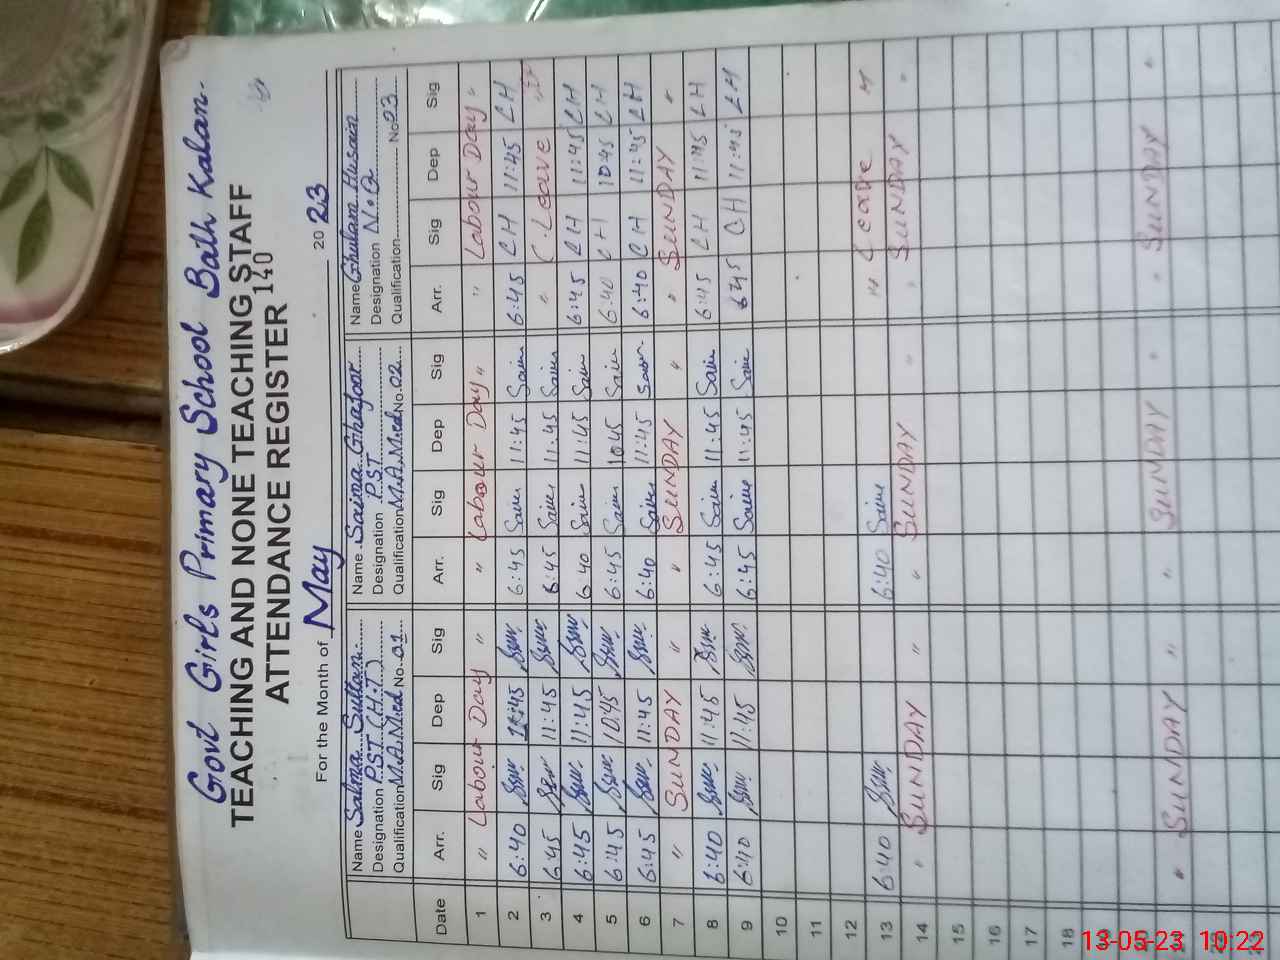 Govt Girls Primary School Bath Kalan.
TEACHING AND NONE TEACHING STAFF
ATTENDANCE REGISTER 140
For the Month of May 2023
Name Salma Sultan Name Saima Ghafoor Name Ghulam Husain
Designation P.S.T (H.T) Designation P.S.T Designation N.Q
Qualification M.A.M.ed No. 01 Qualification M.A.M.ed No. 02 Qualification No 23
Date Arr. Sig Dep Sig Arr. Sig Dep Sig Arr. Sig Dep Sig
1 " Labour Day " " Labour Day " " Labour Day "
2 6:40 11:45 6:45 Saim 11:45 Saim 6:45 CH 11:45 CH
3 6:45 11:45 6:45 Saim 11:45 Saim " C-Leave "
4 6:45 11:45 6:40 Saim 11:45 Saim 6:45 CH 11:45 CH
5 6:45 10:45 6:45 Saim 10:45 Saim 6:40 CH 10:45 CH
6 6:45 11:45 6:40 Saim 11:45 Saim 6:40 CH 11:45 CH
7 " SUNDAY " " SUNDAY " " SUNDAY "
8 6:40 11:45 6:45 Saim 11:45 Saim 6:45 CH 11:45 CH
9 6:40 11:45 6:45 Saim 11:45 Saim 6:45 CH 11:45 CH
10
11
12 " Leave "
13 6:40 6:40 Saim
14 " SUNDAY " " SUNDAY " " SUNDAY "
15
16
17
18
" SUNDAY " " SUNDAY " " SUNDAY "
13-05-23 10:22